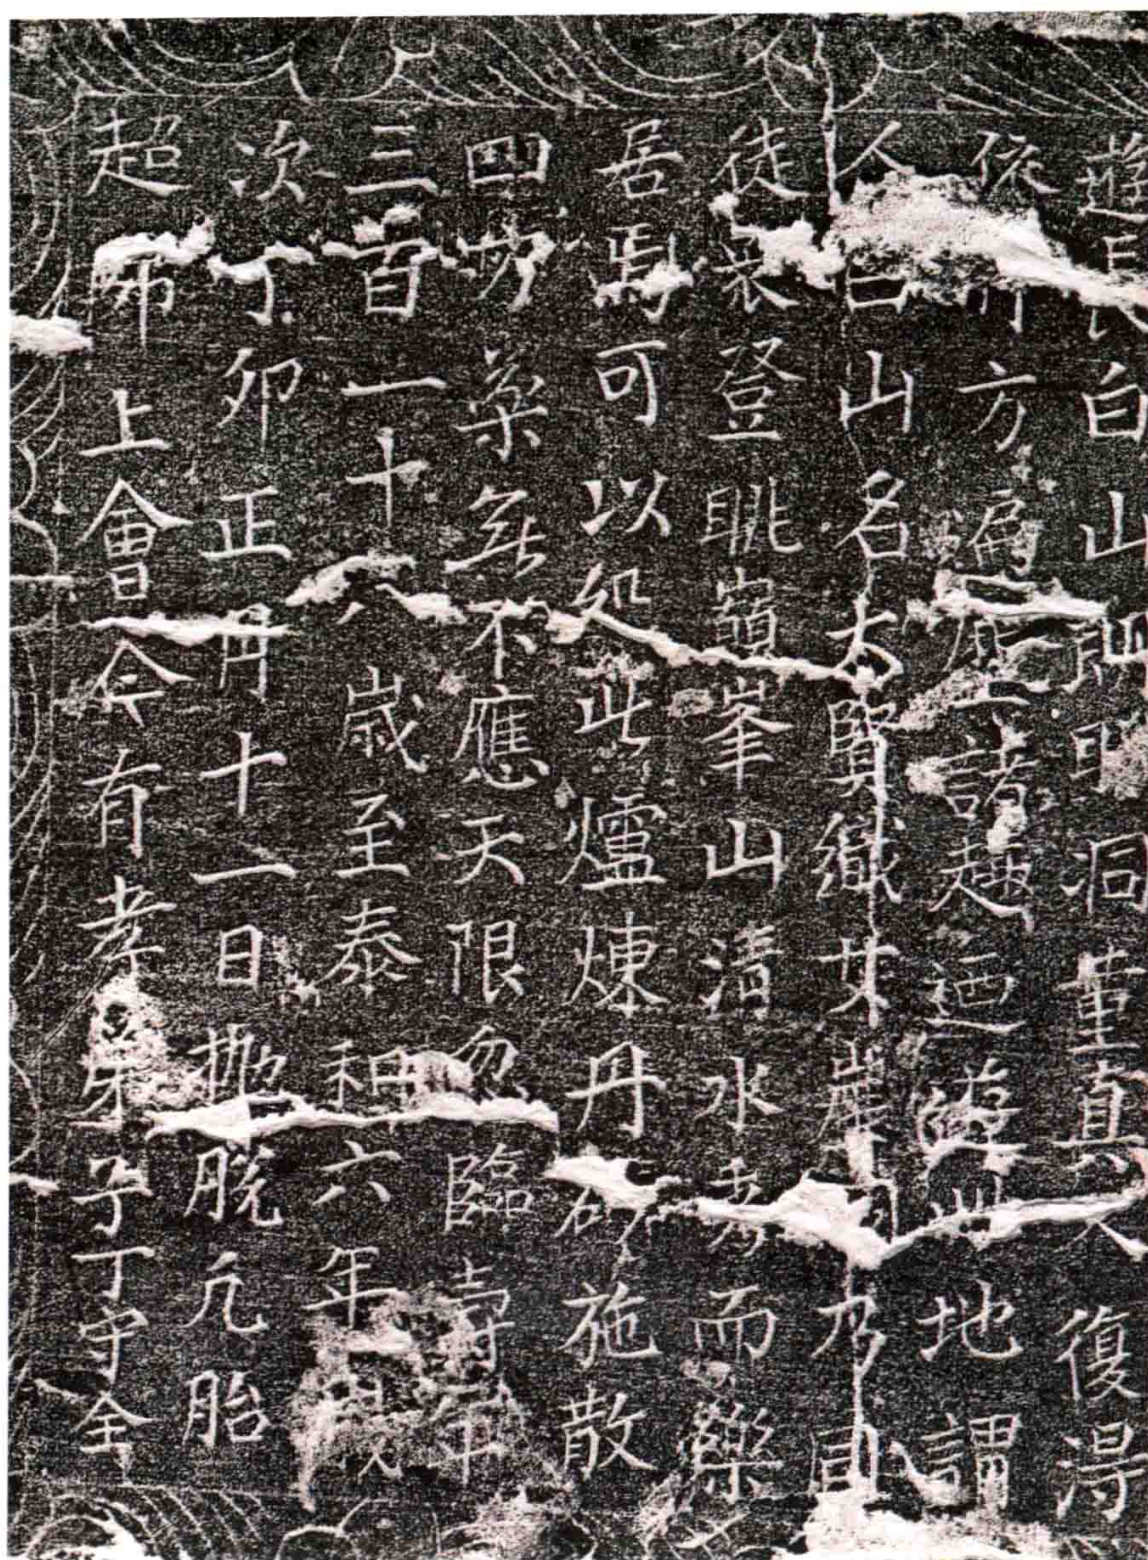 白山朗明洞董真人復得
依所方遍歷諸趣迴遊此地謂
人曰山名大賢巖艾乃
徒衆登眺巔峯山清水秀而樂
居焉可以処此爐煉丹砂施散
四方桒無不應天限忽臨壽年
三百一十八歲至泰和六年歲
次丁卯正月十一日拋脫凢胎
超昇上會今有孝弟子丁守全